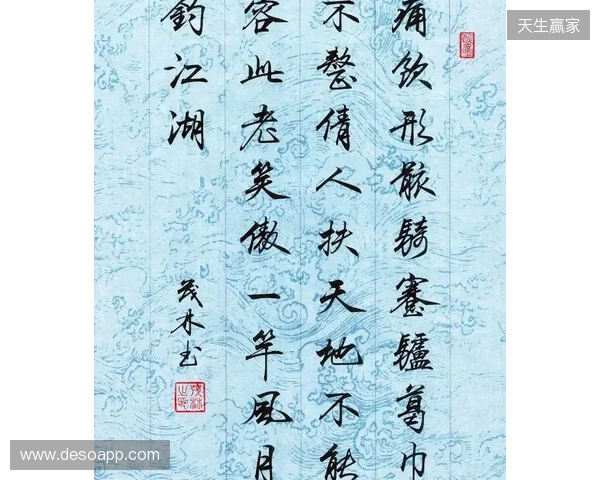 天生赢家
痛飲形骸騎蹇驢葛巾
不整倩人扶天地不能
容此老笑傲一竿風月
釣江湖
茂林书
www.desoapp.com